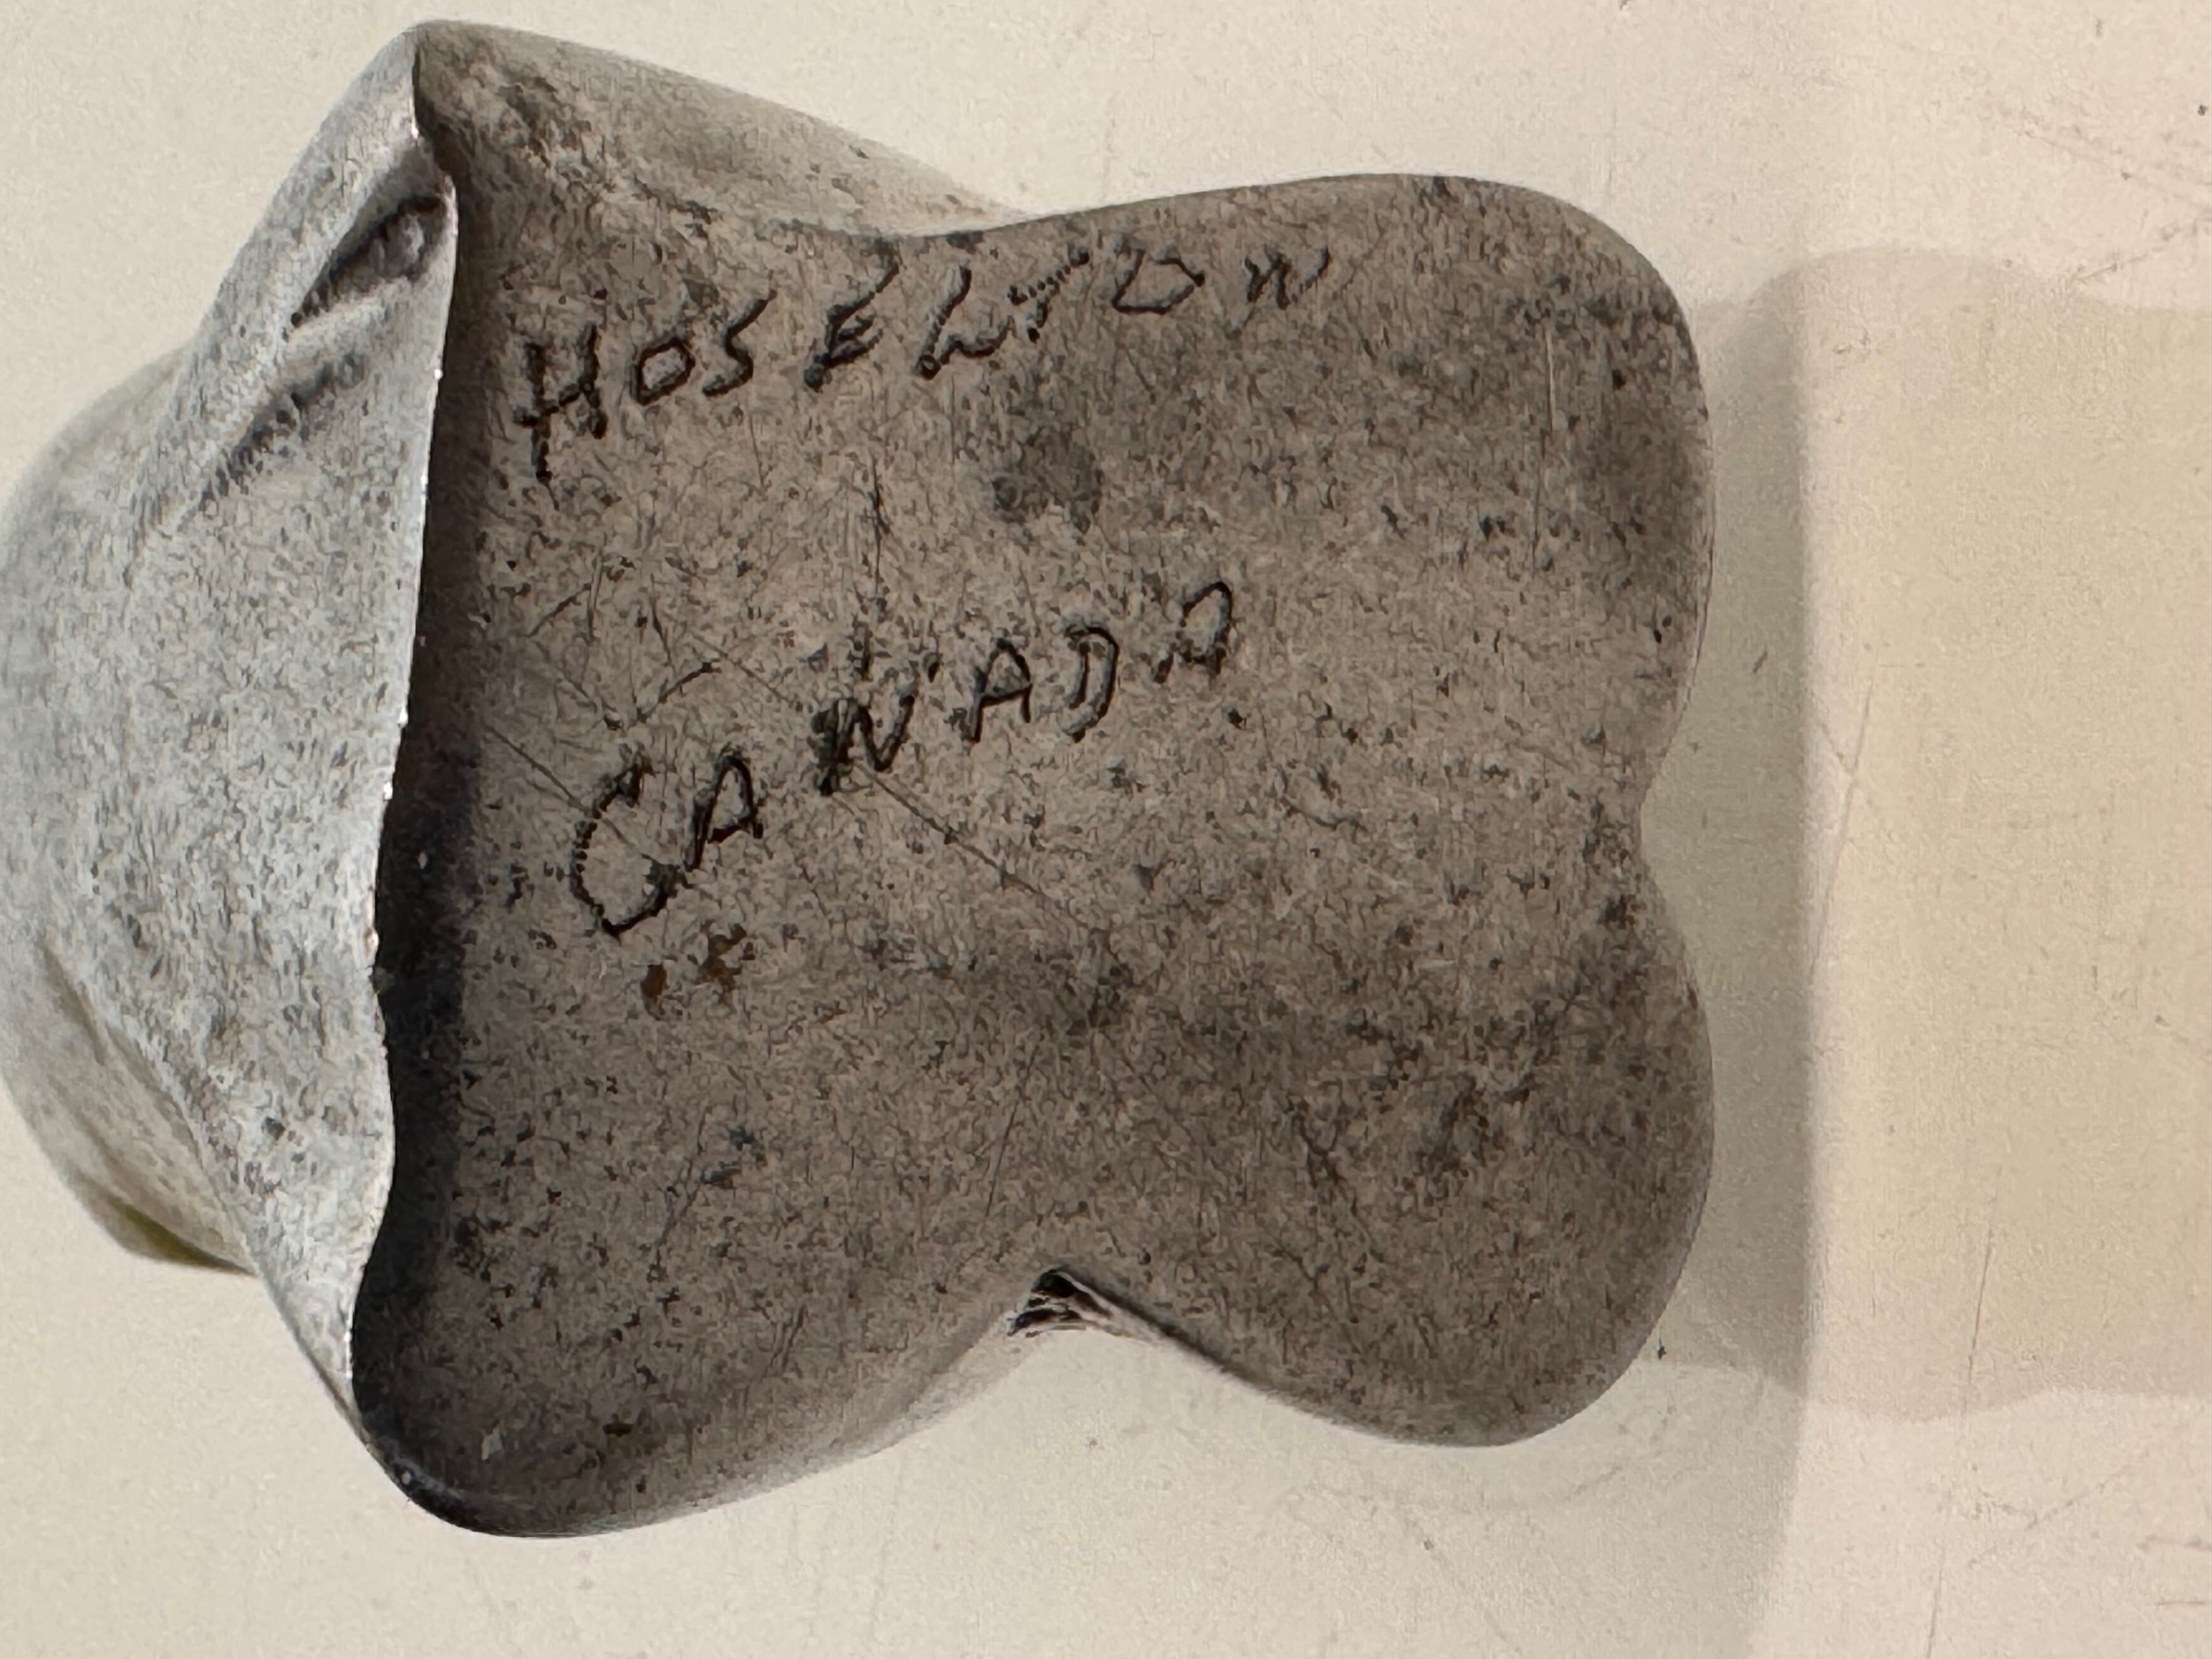 HOSELTON
CANADA